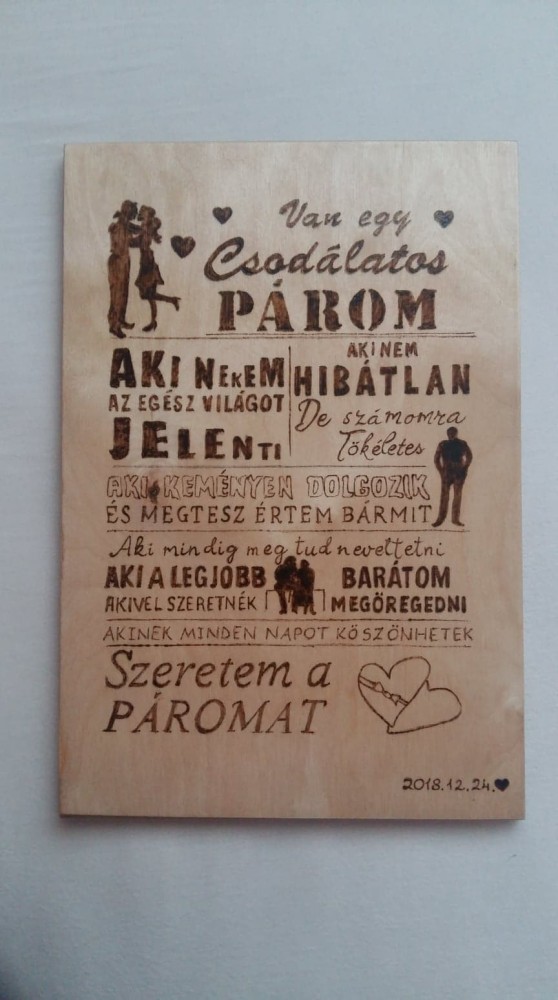 Van egy
Csodálatos
PÁROM
AKI NEKEM
AZ EGÉSZ VILÁGOT
JELENTI
AKI NEM
HIBÁTLAN
De számomra
Tökéletes
AKI KEMÉNYEN DOLGOZIK
ÉS MEGTESZ ÉRTEM BÁRMIT
Aki mindig meg tud nevettetni
AKI A LEGJOBB BARÁTOM
AKIVEL SZERETNÉK MEGÖREGEDNI
AKINEK MINDEN NAPOT KÖSZÖNHETEK
Szeretem a
PÁROMAT
2018.12.24.